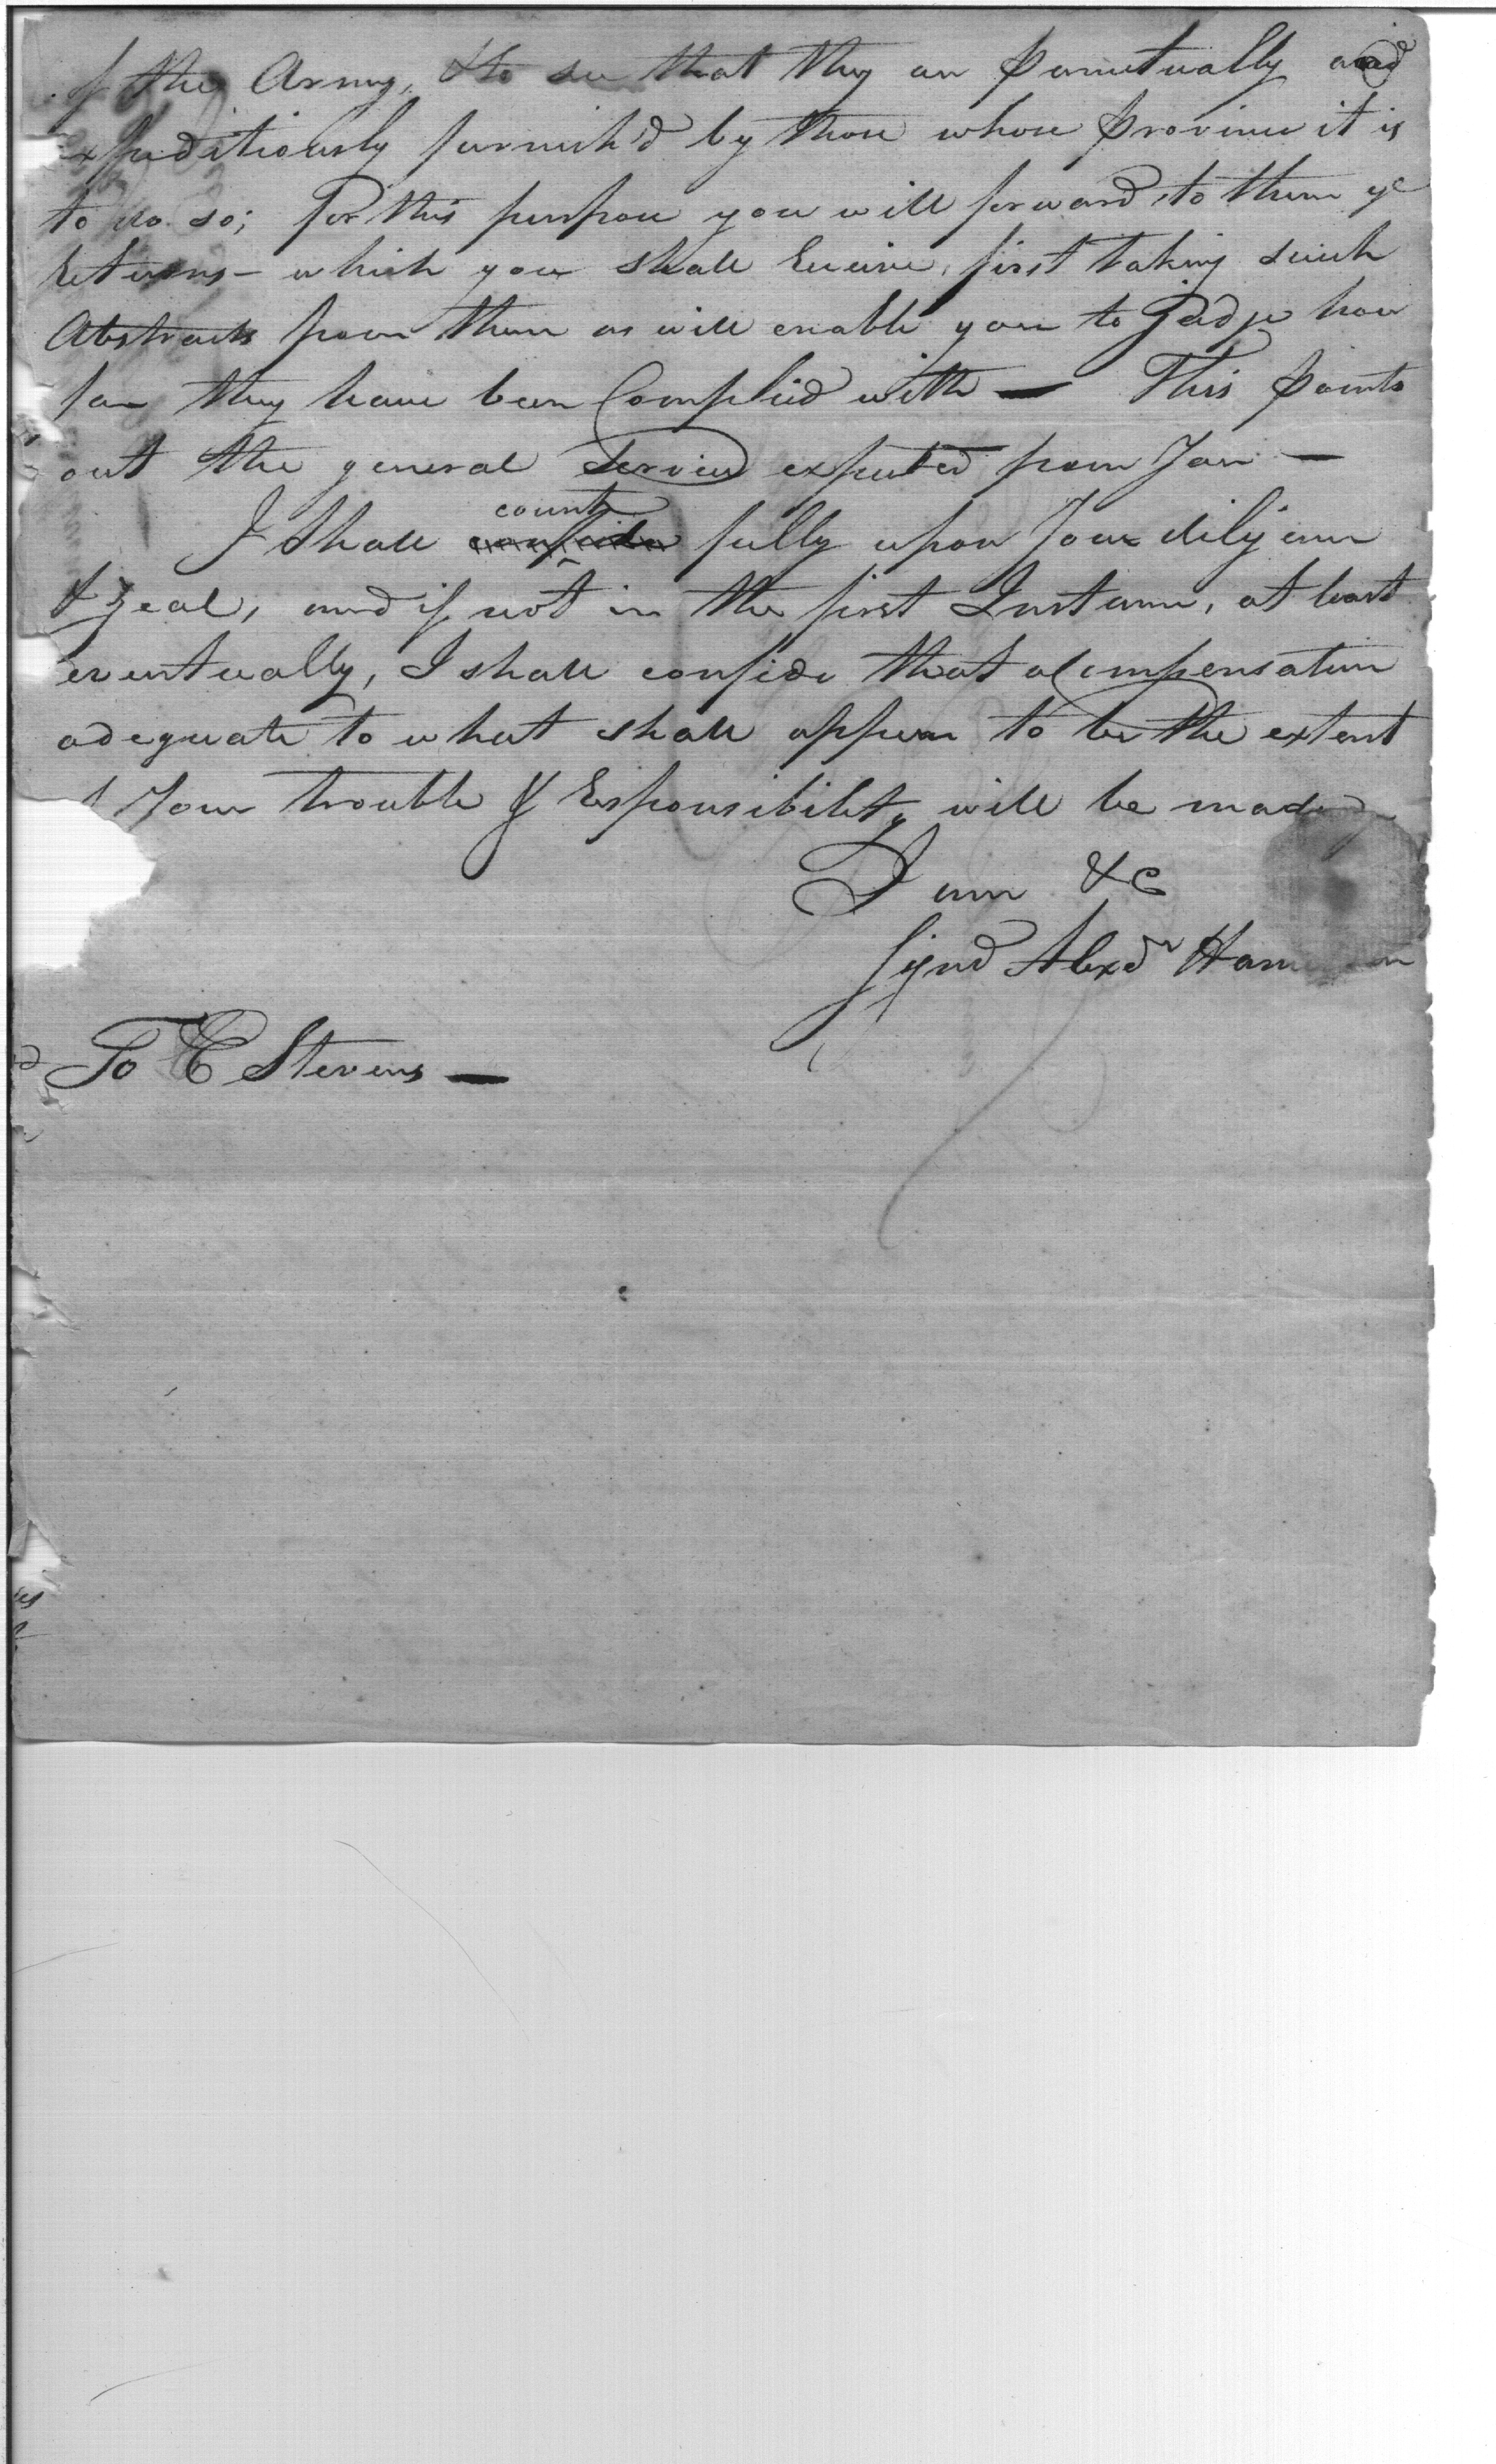 of the Army, & to see that they are punctually and
expeditiously furnish'd by those whose province it is
to do so; for this purpose you will forward to them ye
returns – which you shall receive, first taking such
Abstracts from them as will enable you to Judge how
far they have been Complied with — This points
out the general Service expected from You —
I shall count fully upon Your diligence
& zeal, and if not in the first Instance, at least
eventually, I shall confide that a Compensation
adequate to what shall appear to be the extent
of Your trouble & Responsibility will be made
I am &c
Signd Alexdr Hamilton
To E Stevens —